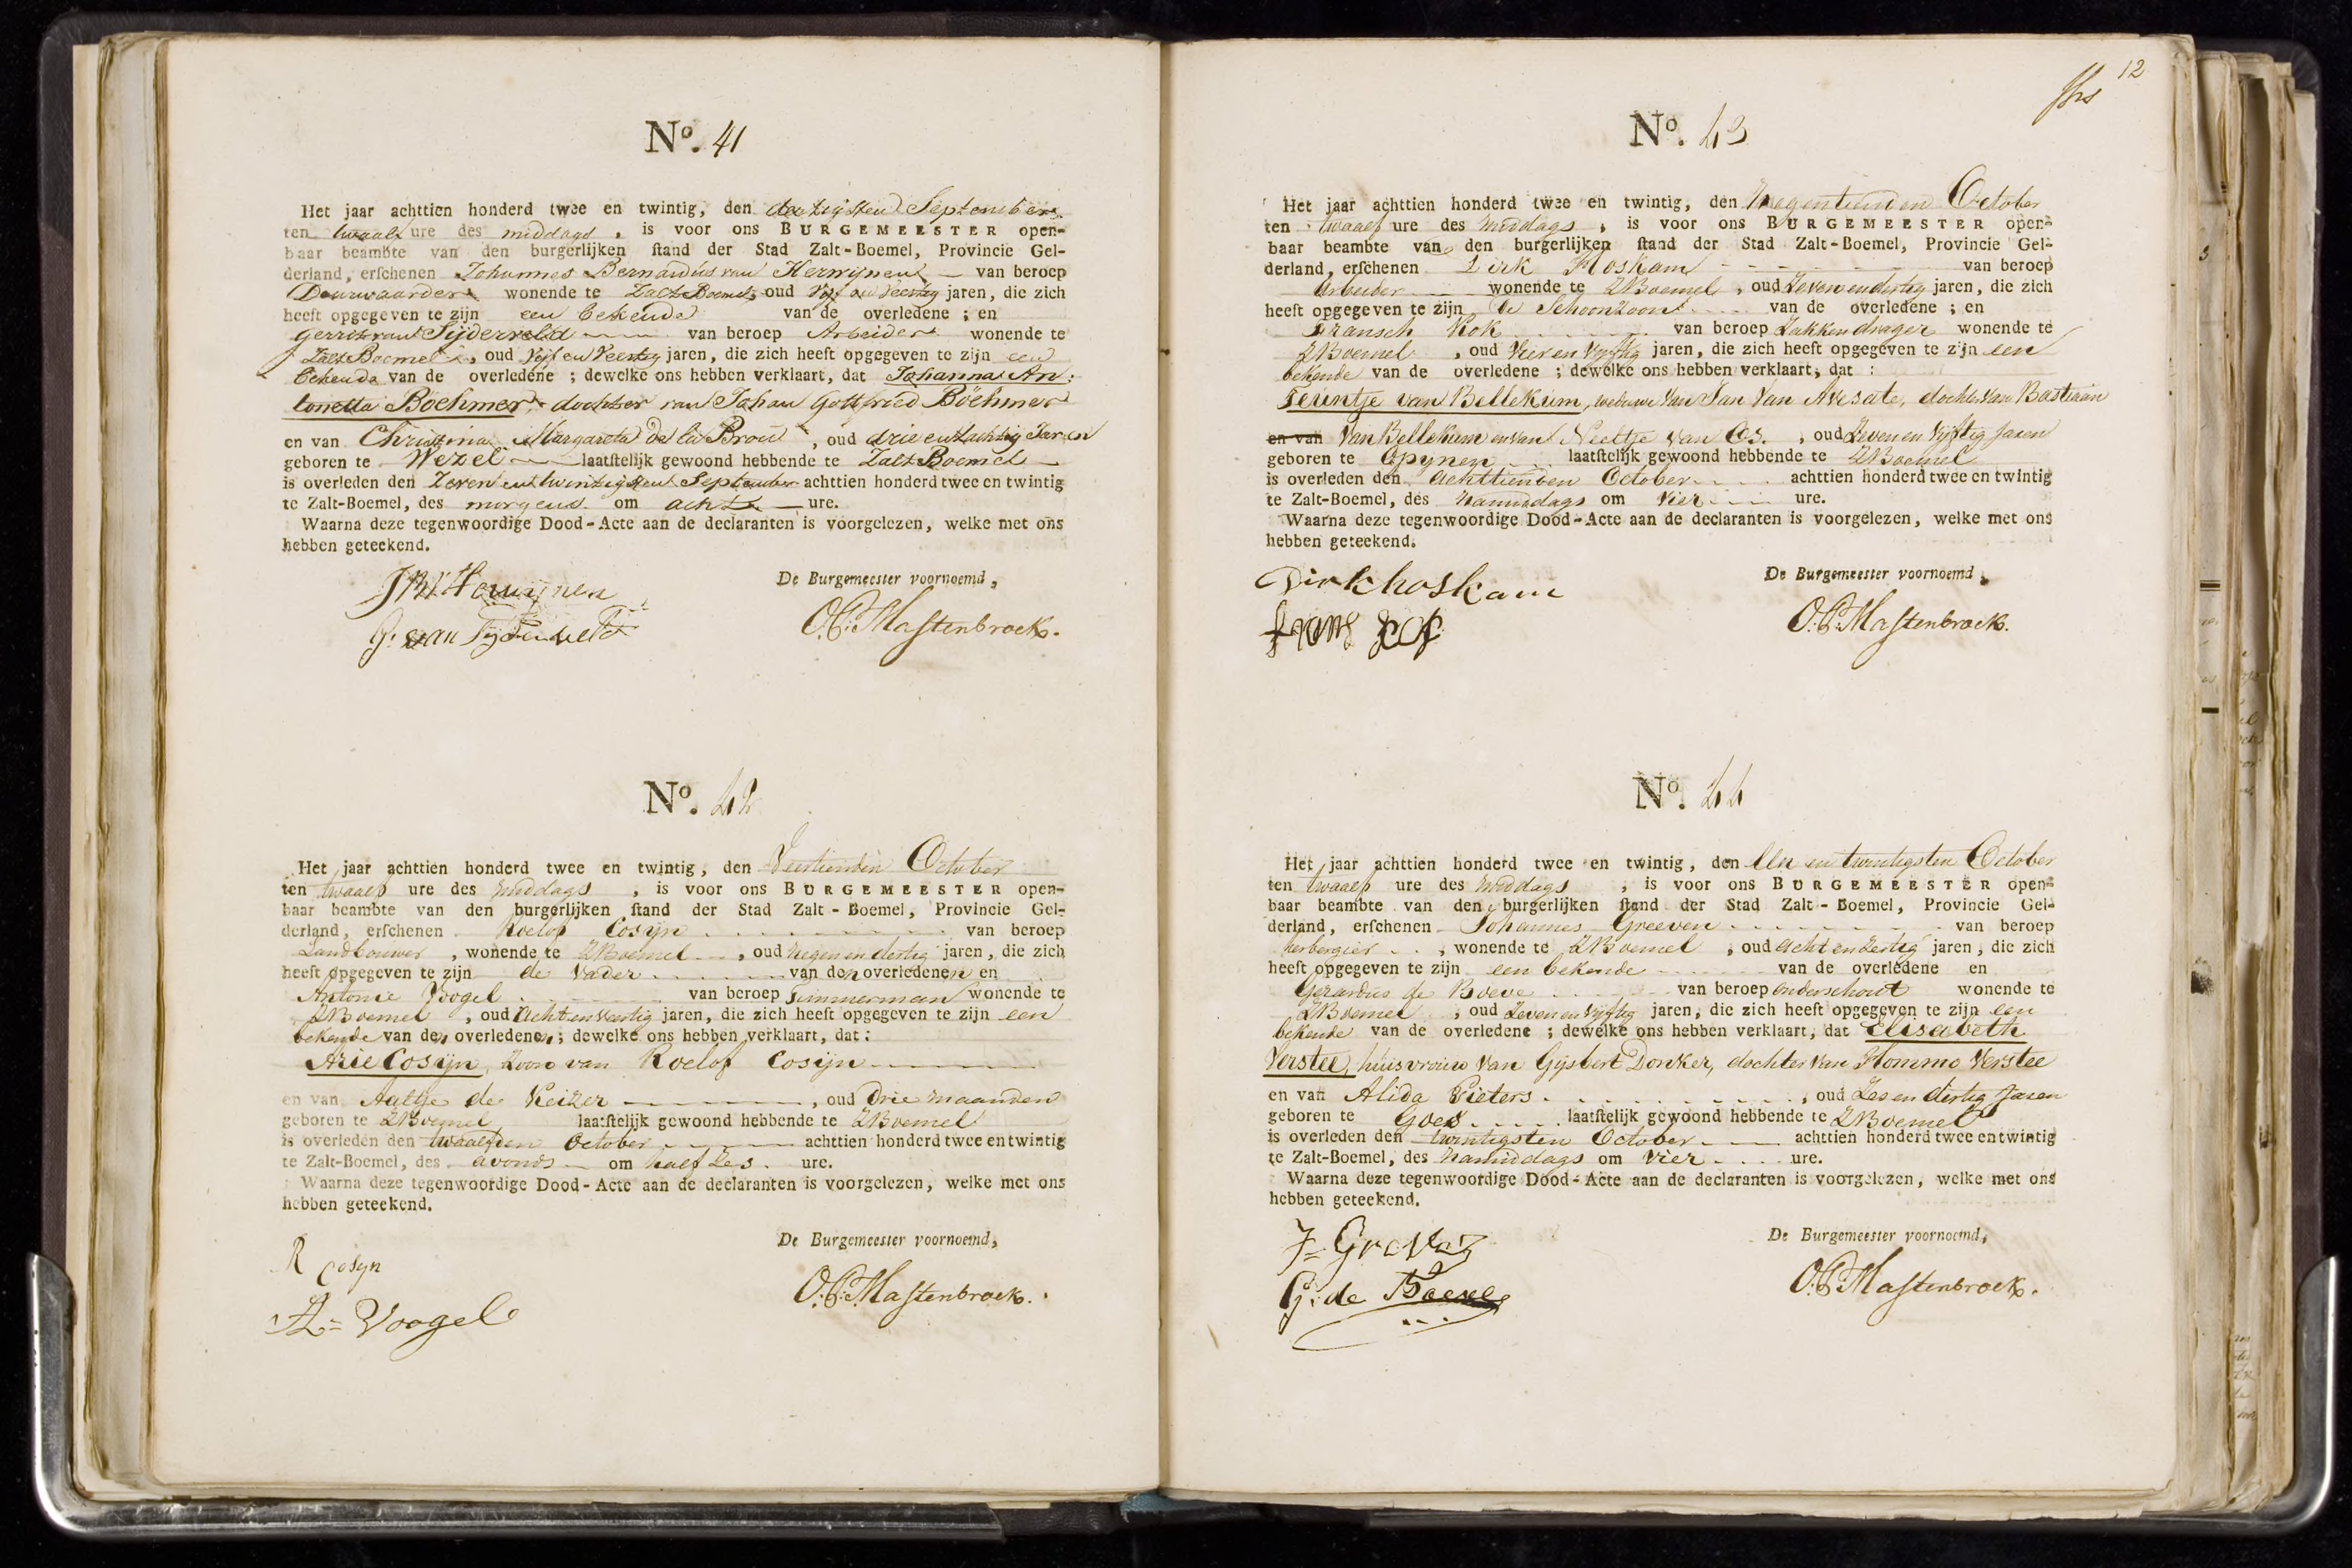 No. 41
Het jaar achttien honderd twee en twintig, den dertigsten September
ten twaalf ure des middags, is voor ons BURGEMEESTER open-
baar beambte van den burgerlijken stand der Stad Zalt-Boemel, Provincie Gel-
derland, erschenen Johannes Bernardus van Herwijnen van beroep
Deurwaarder wonende te Zalt Boemel, oud Vijf en Veertig jaren, die zich
heeft opgegeven te zijn een bekende van de overledene; en
Gerrit van Tijderveld van beroep Arbeider wonende te
Zalt Boemel, oud Vijf en Veertig jaren, die zich heeft opgegeven te zijn een
bekende van de overledene; dewelke ons hebben verklaart, dat Johanna An:
tonetta Boehmer, dochter van Johan Gottfried Böehmer
en van Christina Margareta de la Broú, oud drie en tachtig Jaren
geboren te Wezel laatstelijk gewoond hebbende te Zalt Boemel
is overleden den Zeven en twintigsten September achttien honderd twee en twintig
te Zalt-Boemel, des morgens om acht ure.
Waarna deze tegenwoordige Dood-Acte aan de declaranten is voorgelezen, welke met ons
hebben geteekend.
De Burgemeester voornoemd,
G. van Tijderveld
O.P. Mastenbroek.
No. 42
Het jaar achttien honderd twee en twintig, den Veertienden October
ten twaalf ure des middags, is voor ons BURGEMEESTER open-
baar beambte van den burgerlijken stand der Stad Zalt-Boemel, Provincie Gel-
derland, erschenen Roelof Cosijn van beroep
Landbouwer, wonende te ZBoemel, oud negen en dertig jaren, die zich
heeft opgegeven te zijn de Vader van den overledenen en
Antonie Voogel van beroep Timmerman wonende te
ZBoemel, oud Acht en Veertig jaren, die zich heeft opgegeven te zijn een
bekende van den overledenen; dewelke ons hebben verklaart, dat:
Arie Cosijn, zoon van Roelof Cosijn
en van Aaltje de Keizer, oud Drie maanden
geboren te ZBoemel laatstelijk gewoond hebbende te ZBoemel
is overleden den twaalfden October achttien honderd twee en twintig
te Zalt-Boemel, des avonds om half Zes ure.
Waarna deze tegenwoordige Dood-Acte aan de declaranten is voorgelezen, welke met ons
hebben geteekend.
De Burgemeester voornoemd,
R Cosyn
A= Voogel
O.P. Mastenbroek.
12
No. 43
Het jaar achttien honderd twee en twintig, den Negentienden October
ten twaalf ure des middags, is voor ons BURGEMEESTER open-
baar beambte van den burgerlijken stand der Stad Zalt-Boemel, Provincie Gel-
derland, erschenen Dirk Hoskam van beroep
Arbeider wonende te ZBoemel, oud Zeven en dertig jaren, die zich
heeft opgegeven te zijn de Schoonzoon van de overledene; en
Fransch Kok van beroep Zakkendrager wonende te
ZBoemel, oud Vier en Vijftig jaren, die zich heeft opgegeven te zijn een
bekende van de overledene; dewelke ons hebben verklaart, dat:
Teuntje van Bellekum, weduwe Van Jan Van Avesate, dochter Van Bastiaan
en van Van Bellekum en van Neeltje Van Os., oud Zeven en Vijftig Jaren
geboren te Opynen laatstelijk gewoond hebbende te ZBoemel
is overleden den achttienden October achttien honderd twee en twintig
te Zalt-Boemel, des Namiddags om Vier ure.
Waarna deze tegenwoordige Dood-Acte aan de declaranten is voorgelezen, welke met ons
hebben geteekend.
De Burgemeester voornoemd,
Dirk hoskam
frans kok
O.P. Mastenbroek.
No. 44
Het jaar achttien honderd twee en twintig, den Een en twintigsten October
ten twaalf ure des middags, is voor ons BURGEMEESTER open-
baar beambte van den burgerlijken stand der Stad Zalt-Boemel, Provincie Gel-
derland, erschenen Johannes Greeven van beroep
herbergier, wonende te ZBoemel, oud acht en dertig jaren, die zich
heeft opgegeven te zijn een bekende van de overledene en
Gerardus de Boeve van beroep onderschout wonende te
ZBoemel, oud Zeven en Vijftig jaren, die zich heeft opgegeven te zijn een
bekende van de overledene; dewelke ons hebben verklaart, dat Elisabeth
Verstee, huisvrouw Van Gijsbert Donker, dochter Van Hommo Verstee
en van Alida Pieters, oud Zes en dertig Jaren
geboren te Goes laatstelijk gewoond hebbende te ZBoemel
is overleden den twintigsten October achttien honderd twee en twintig
te Zalt-Boemel, des Namiddags om Vier ure.
Waarna deze tegenwoordige Dood-Acte aan de declaranten is voorgelezen, welke met ons
hebben geteekend.
De Burgemeester voornoemd,
G: de Boeve
O.P. Mastenbroek.